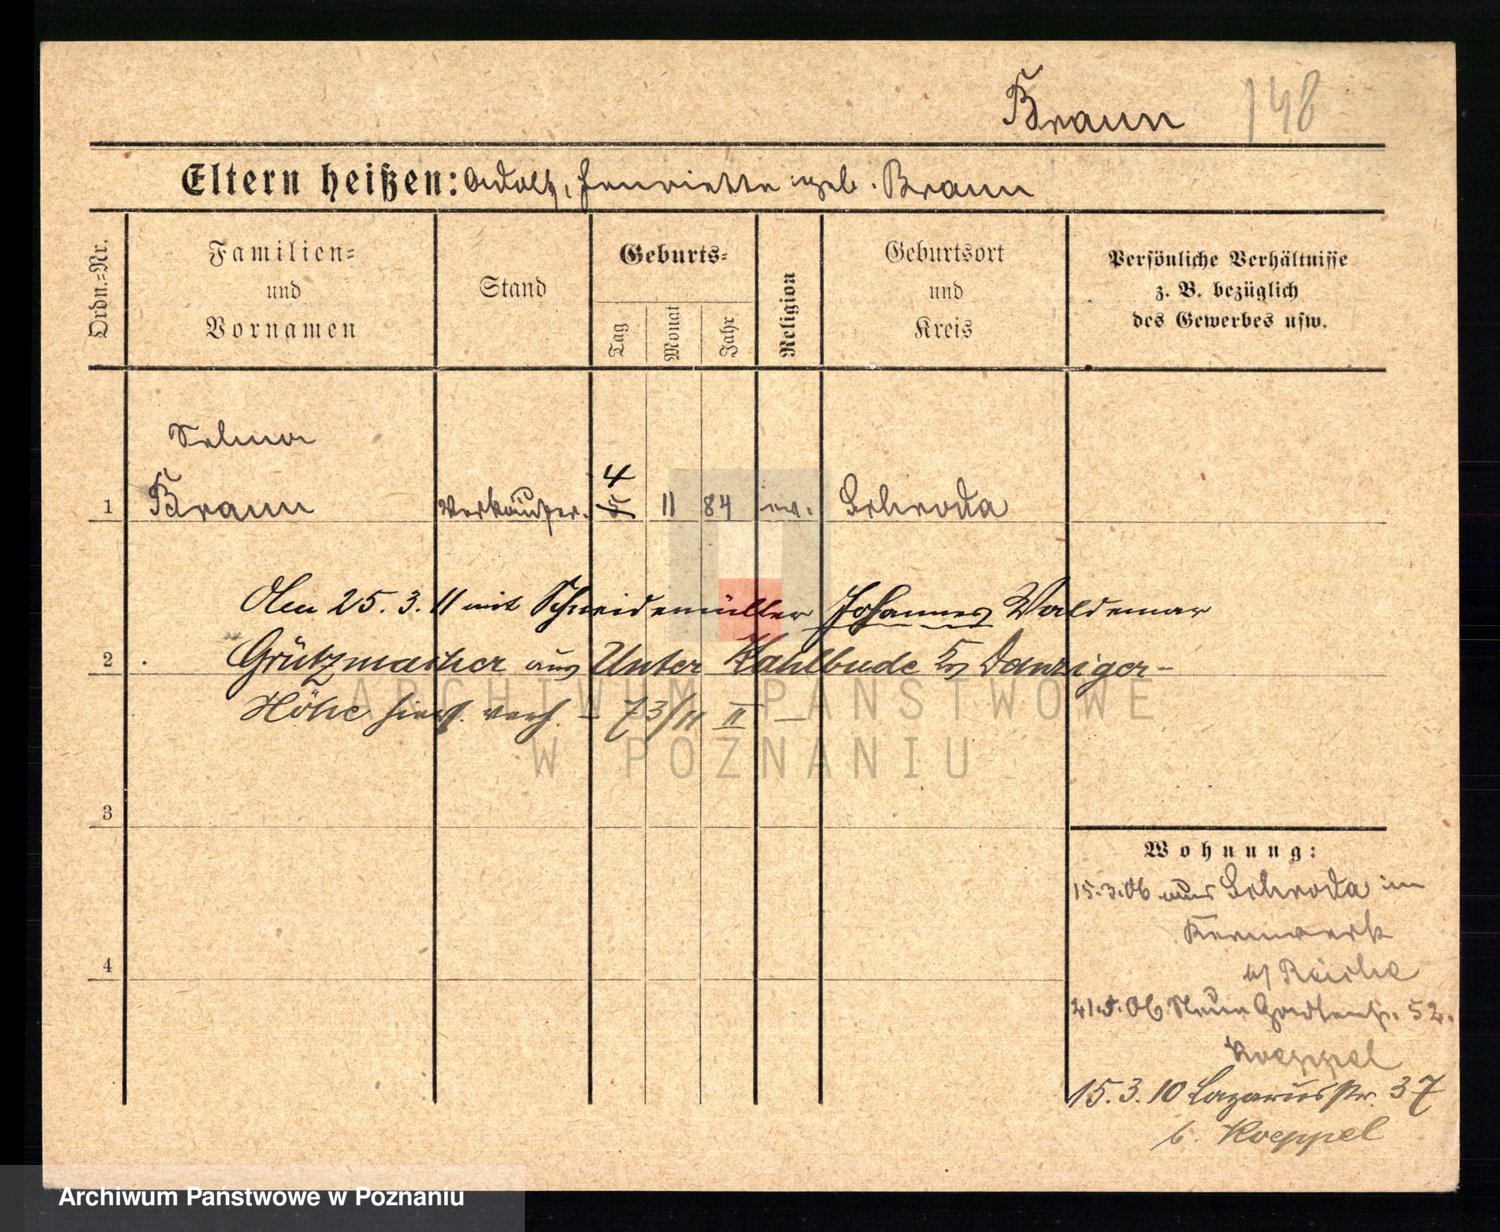 Braun 148
Eltern heißen: Adolf, Henriette geb. Braun
Ordn.-Nr.
Familien-
und
Vornamen
Stand
Geburts-
Tag
Monat
Jahr
Religion
Geburtsort
und
Kreis
Persönliche Verhältnisse
z. B. bezüglich
des Gewerbes usw.
Selma
4
1 Braun Verkäufer. 5 11 84 ev. Schroda
Am 25. 3. 11 mit Schneidemüller Johannes Waldemar
2 Grützmacher aus Unter Kahlbude Krs Danziger-
Höhe hier verh. - 73/11 II -
3
4
Wohnung:
15.3.06 aus Schroda im
Kernwerk
b/ Reiche
21.5.06 Neue Gartenstr. 52.
Koeppel
15. 3. 10 Lazarusstr. 37
b. Koeppel
ARCHIWUM PAŃSTWOWE
W POZNANIU
Archiwum Państwowe w Poznaniu